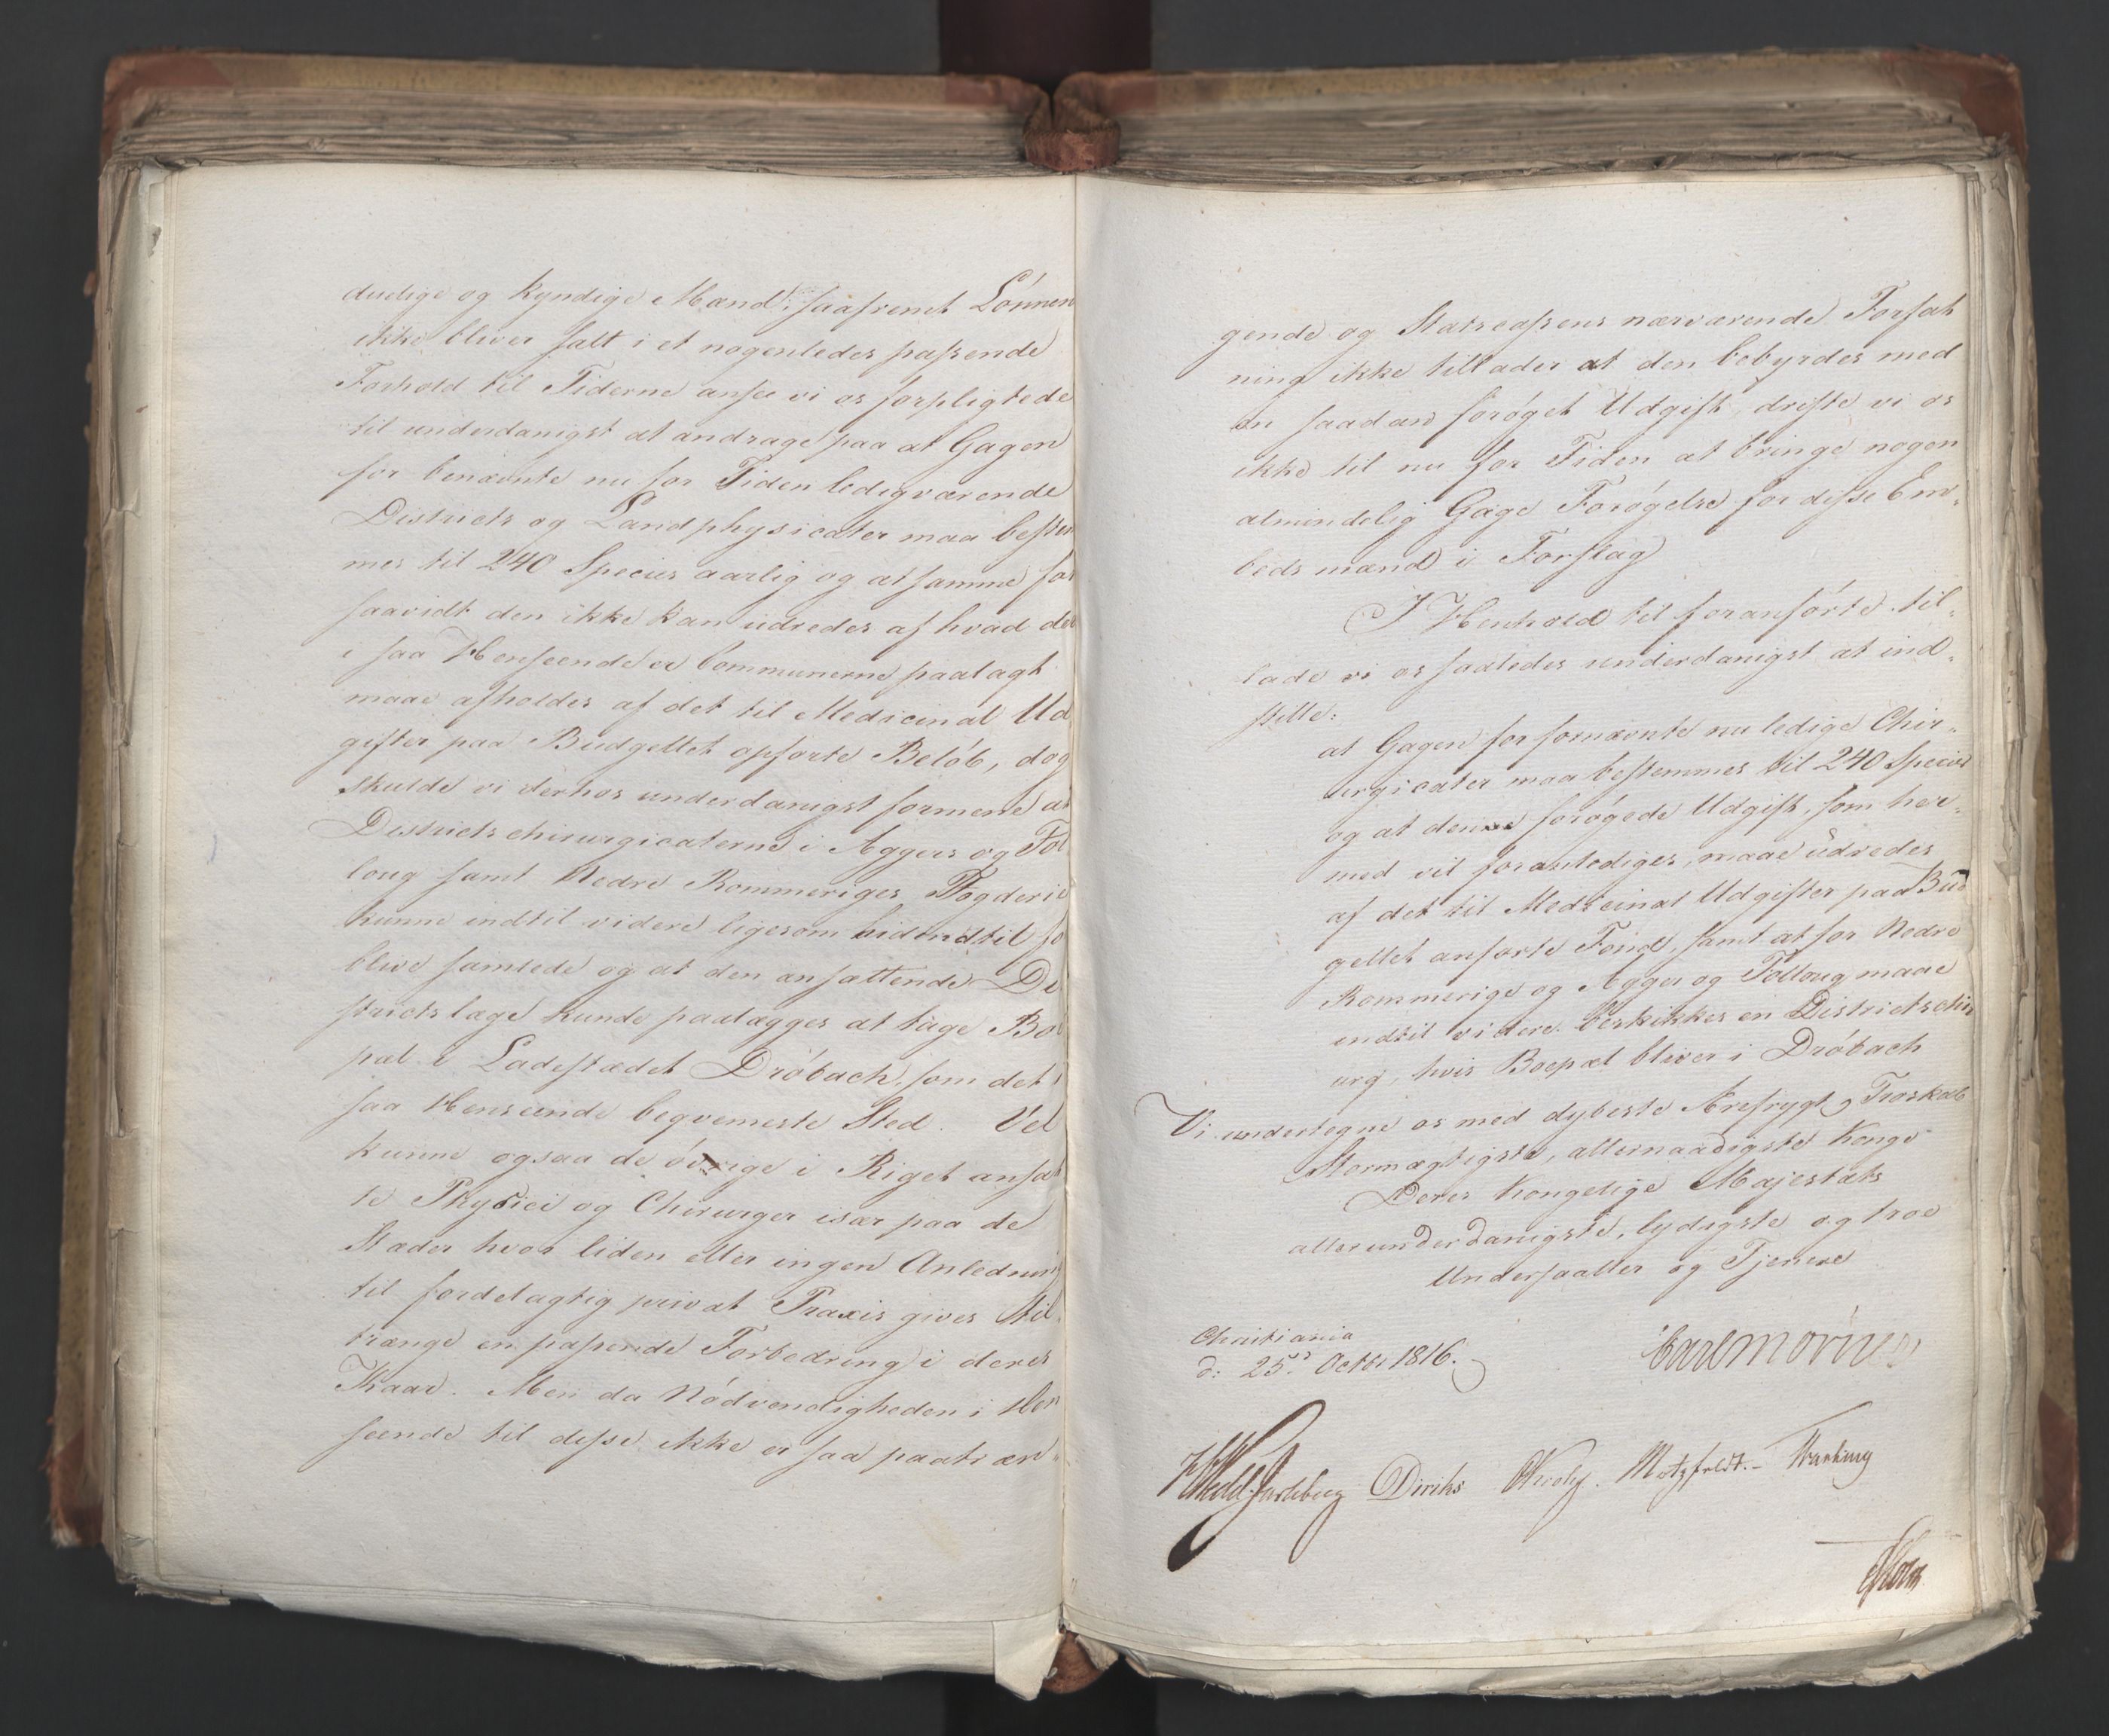 duelige og kyndige Mænd, saafremt Lønnen
ikke bliver satt i et nogenledes passende
Forhold til Tiderne ansee vi os forpligtede
til underdanigst at andrage paa at Gagen
for benævnte nu for Tiden ledigværende
Districts og Landphysicater maa bestem
mes til 240 Species aarlig og at samme for
saavidt den ikke kan udredes af hvad der
i saa Henseende er Communerne paalagt
maae afholdes af det til Medicinal Ud
gifter paa Budgettet opførte Beløb, dog
skulde vi derhos underdanigst formene at
Districtschirurgicaterne i Aggers og Fol
loug samt Nedre Rommeriges Fogderie
kunne indtil videre ligesom hidindtil for
blive samlede og at den ansættende Di
strictslæge kunde paalægges at tage Bo
pæl i Ladestædet Drøbach, som det i
saa Henseende beqvemeste Sted. Vel
kunne ogsaa de øvrige i Riget ansat
te Physici og Chirurger især paa de
Stæder hvor liden eller ingen Anledning
til fordelagtig privat Praxis gives til
trænge en passende Forbedring i deres
Kaar. Men da Nødvendigheden i Hen
seende til disse ikke er saa paatræn-
gende og Statscassens nærværende Forfat
ning ikke tillader at den bebyrdes med
en saadan forøget Udgift, driste vi os
ikke til nu for Tiden at bringe nogen
almindelig Gage Forøgelse for disse Em-
bedsmænd i Forslag
I Henhold til foranførte til-
lade vi os saaledes underdanigst at ind-
stille:
at Gagen for fornævnte nu ledige Chir-
urgicater maa bestemmes til 240 Species
og at denne forøgede Udgift, som her-
med vil foranlediges, maae udredes
af det til Medicinal Udgifter paa Bud
gettet anførte Fond, samt at for Nedre
Rommerige og Agger og Folloug maae
indtil videre beskikkes en Districtschir
urg, hvis Boepæl bliver i Drøbach
Vi undertegne os med dybeste Ærefrygt og Troskab
Stormægtigste, allernaadigste Konge
Deres Kongelige Majestæts
allerunderdanigste, lydigste og troe
Undersaatter og Tjenere
Christiania
d: 25. Octbr 1816.
Carl Mörner
HWedel Jarlsberg Diriks Motzfeldt.
Holm